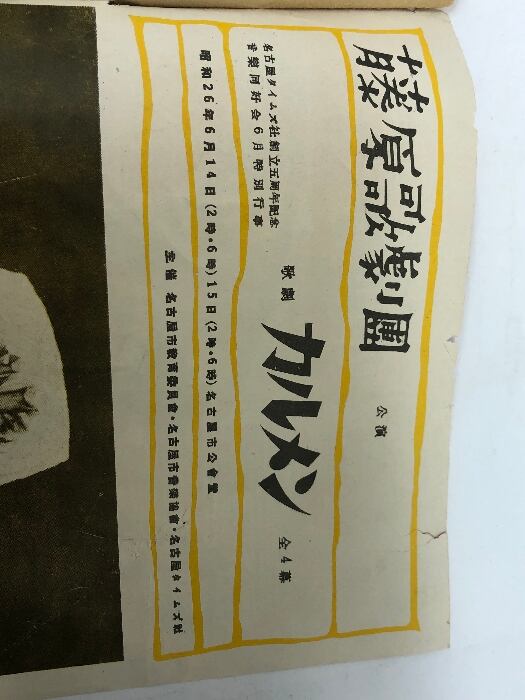 藤原歌劇團
公演
名古屋タイムズ社創立五周年記念
音樂同好会6月特別行事
歌劇
カルメン
全4幕
昭和26年6月14日(2時・6時)15日(2時・6時)名古屋市公會堂
主催 名古屋市教育委員會・名古屋市音樂協會・名古屋タイムズ社